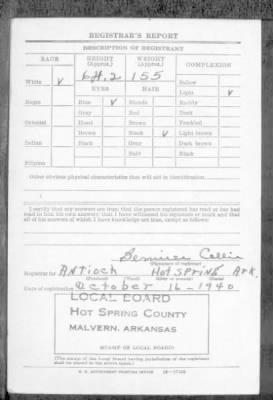 REGISTRAR'S REPORT
DESCRIPTION OF REGISTRANT
RACE HEIGHT (Approx.) WEIGHT (Approx.) COMPLEXION
6 ft. 2 155
White ✓ Sallow
EYES HAIR Light ✓
Negro Blue ✓ Blonde Ruddy
Gray Red Dark
Oriental Hazel Brown Freckled
Brown Black ✓ Light brown
Indian Black Gray Dark brown
Bald Black
Filipino
Other obvious physical characteristics that will aid in identification
I certify that my answers are true; that the person registered has read or has had
read to him his own answers; that I have witnessed his signature or mark and that
all of his answers of which I have knowledge are true, except as follows:
(Signature of registrar)
Registrar for Antioch Hot Spring Ark.
(Precinct) (Ward) (City or county) (State)
Date of registration October 16-1940
LOCAL BOARD
HOT SPRING COUNTY
MALVERN, ARKANSAS
(STAMP OF LOCAL BOARD)
(The stamp of the Local Board having jurisdiction of the registrant
shall be placed in the above space.)
U. S. GOVERNMENT PRINTING OFFICE